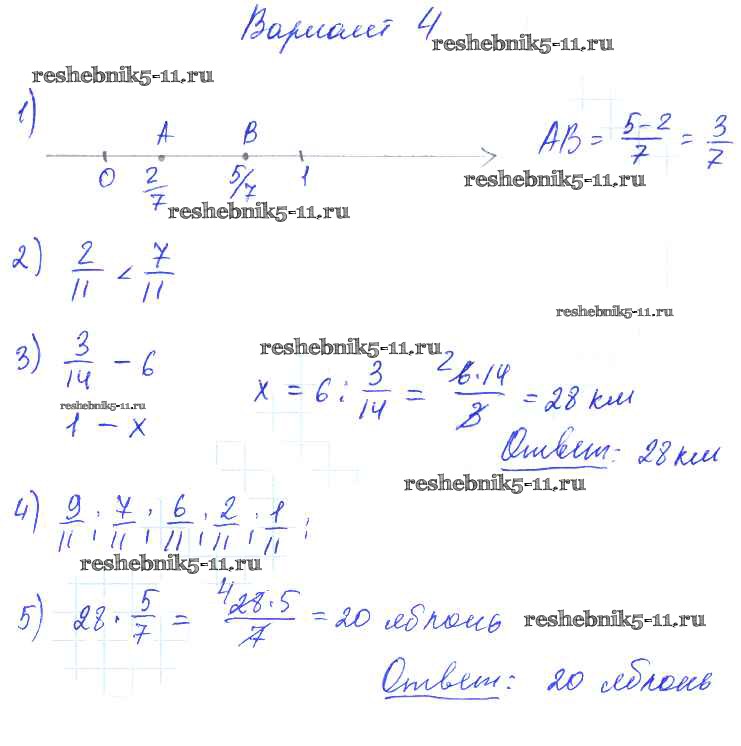 Вариант 4
reshebnik5-11.ru
reshebnik5-11.ru
1)
A B
0 2/7 5/7 1
AB = (5-2)/7 = 3/7
reshebnik5-11.ru
reshebnik5-11.ru
2) 2/11 < 7/11
reshebnik5-11.ru
reshebnik5-11.ru
3) 3/14 - 6
reshebnik5-11.ru
1 - x
x = 6 : 3/14 = 2 6·14/3 = 28 км
Ответ: 28 км
reshebnik5-11.ru
4) 9/11; 7/11; 6/11; 2/11; 1/11;
reshebnik5-11.ru
5) 28 · 5/7 = 4 28·5/7 = 20 яблонь
reshebnik5-11.ru
Ответ: 20 яблонь